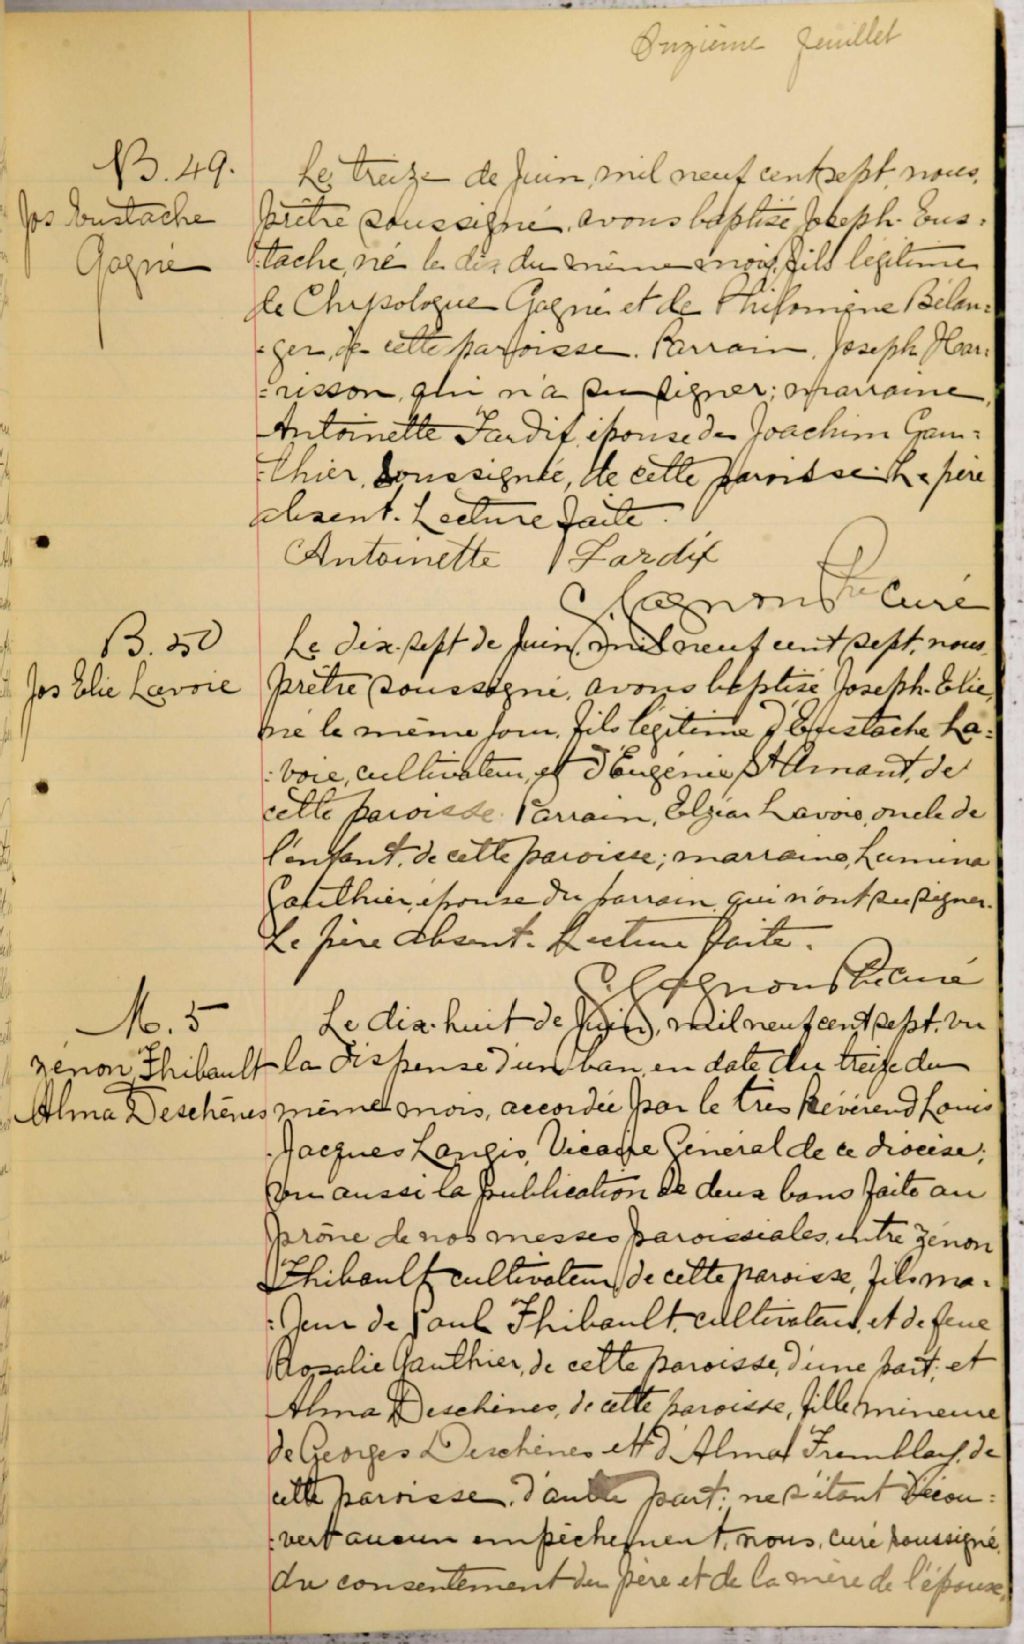 Onzième feuillet
B. 49.
Jos Eustache
Gagné
Le treize de Juin, mil neuf cent sept, nous,
prêtre soussigné, avons baptisé Joseph-Eus=
=tache, né le dix du même mois, fils légitime
de Chrysologue Gagné et de Philomène Bélan=
=ger, de cette paroisse. Parrain, Joseph Har=
=risson, qui n'a su signer; marraine,
Antoinette Tardif, épouse de Joachim Gau=
=thier, soussignée, de cette paroisse. Le père
absent. Lecture faite.
Antoinette Tardif
Gagnon Ptre Curé
B. 50
Jos Elie Lavoie
Le dix-sept de Juin, mil neuf cent sept, nous,
prêtre soussigné, avons baptisé Joseph-Elie,
né le même jour, fils légitime d'Eustache La=
=voie, cultivateur, et d'Eugénie St Amant, de
cette paroisse. Parrain, Elzéar Lavoie, oncle de
l'enfant, de cette paroisse; marraine, Lumina
Gauthier, épouse du parrain, qui n'ont su signer.
Le père absent. Lecture faite.
Gagnon Ptre curé
M. 5
Zénon Thibault
Alma Deschênes
Le dix-huit de Juin, mil neuf cent sept, vu
la dispense d'un ban, en date du treize du
même mois, accordée par le très Révérend Louis
Jacques Langis, Vicaire Général de ce diocèse;
vu aussi la publication de deux bans faite au
prône de nos messes paroissiales, entre Zénon
Thibault, cultivateur, de cette paroisse, fils ma=
=jeur de Paul Thibault, cultivateur, et de feue
Rosalie Gauthier, de cette paroisse, d'une part; et
Alma Deschênes, de cette paroisse, fille mineure
de Georges Deschênes et d'Alma Tremblay, de
cette paroisse, d'autre part; ne s'étant décou=
=vert aucun empêchement, nous, curé soussigné,
du consentement du père et de la mère de l'épouse,